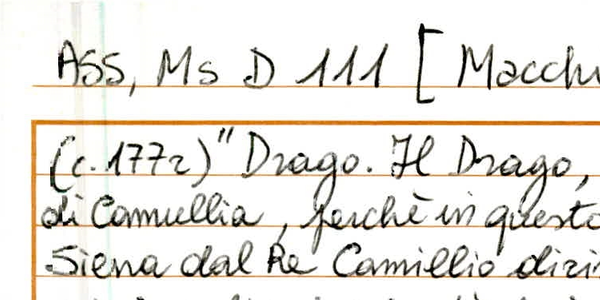 ASS, Ms D 111 [ Macchi
(c. 177r) "Drago. Il Drago,
di Camullia, perchè in questo
Siena dal Re Camillio dizi